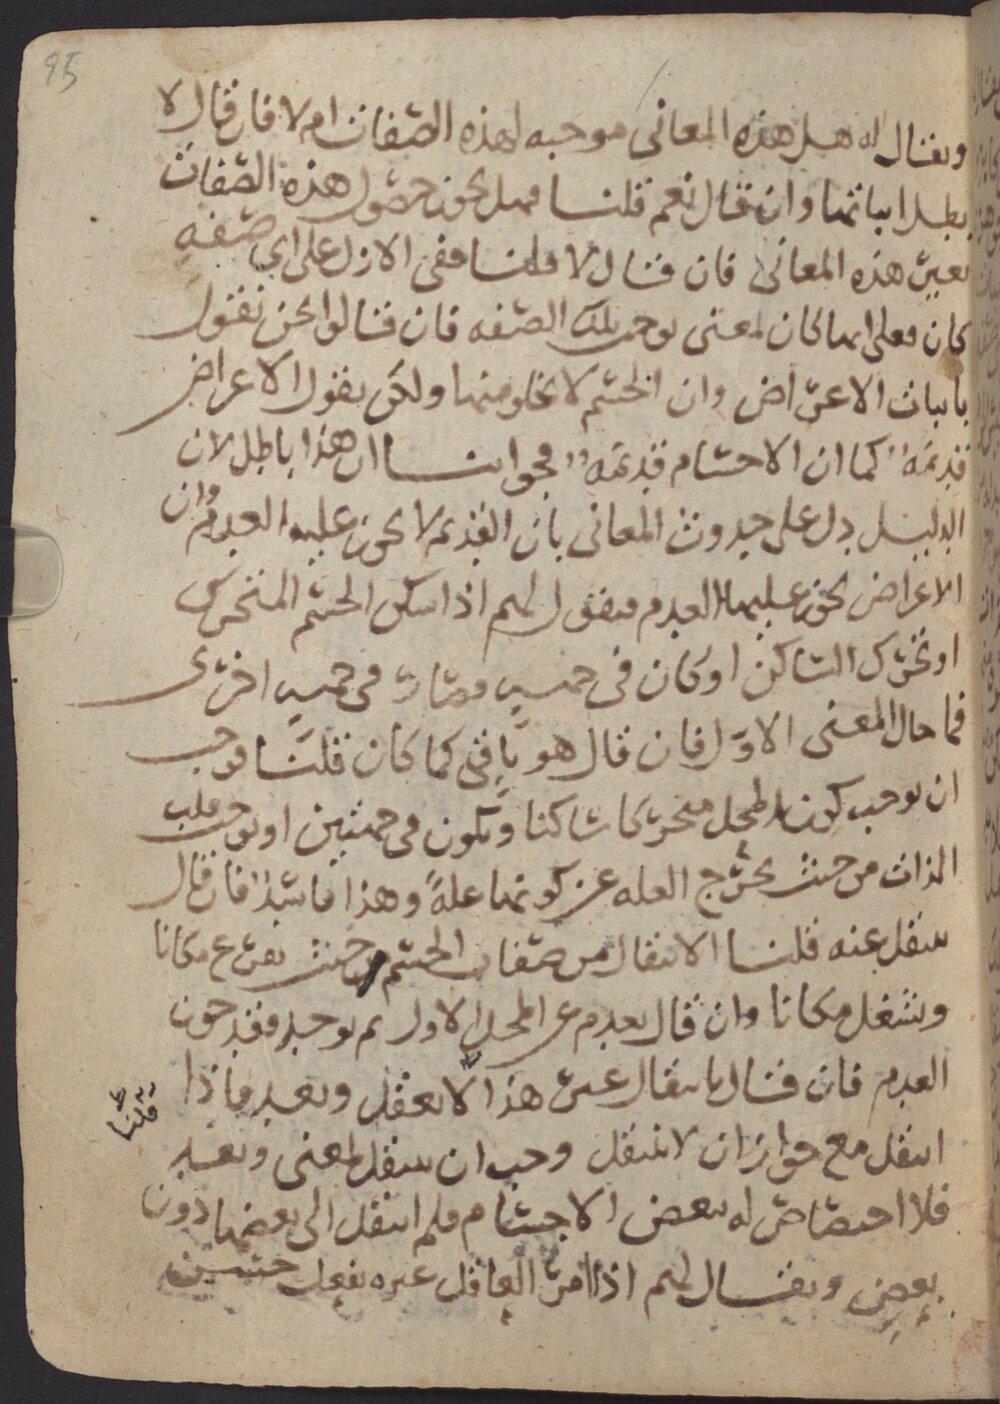 95
ويقال له هل هذه المعاني موجبه لهذه الصفات ام لا فان قال لا
بطل اثباتها وان قال نعم قلنا فهل يجوز حصول هذه الصفات
بغير هذه المعاني فان قال لا قلنا ففي الازل على اي صفه
كان فعلى ايها كان لمعنى يوجب تلك الصفه فان قالوا نحن نقول
باثبات الاعراض وان الجسم لا يخلو منها ولكن نقول الاعراض
قديمه كما ان الاجسام قديمه فجوابنا ان هذا باطل لان
الدليل دل على حدوث المعاني بان القديم لا يجوز عليه العدم وان
الاعراض يجوز عليها العدم فنقول لهم اذا سكن الجسم المتحرك
او تحرك الساكن او كان في جهه فصار في جهه اخرى
فما حال المعنى الاول فان قال هو باقي كما كان قلنا فوجب
ان يوجب كون المحل متحركا ساكنا ويكون في جهتين او يوجب قلب
الذات من حيث يخرج العله عن كونها علةً وهذا فاسد فان قال
ينتقل عنه قلنا الانتقال من صفات الجسم من حيث يفرغ مكانا
ويشغل مكانا وان قال يعدم عن المحل الاول ثم يوجد فقد جوز
العدم فان قال بانتقال غير هذا لا يعقل وبعد فاذا
قلنا
انتقل مع جواز ان لا ينتقل وجب ان ينتقل لمعنى وبعد
فلا اختصاص له ببعض الاجسام فلم انتقل الى بعضها دون
بعض ويقال لهم اذا امر العاقل غيره بفعل حسن